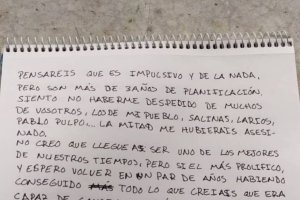 PENSAREIS QUE ES IMPULSIVO Y DE LA NADA,
PERO SON MÁS DE 3 AÑOS DE PLANIFICACIÓN,
SIENTO NO HABERME DESPEDIDO DE MUCHOS
DE VOSOTROS, LOS DE MI PUEBLO, SALINAS, LARIOS,
PABLO PULPO... LA MITAD ME HUBIERAIS ASESI-
NADO.
NO CREO QUE LLEGUE A SER UNO DE LOS MEJORES
DE NUESTROS TIEMPOS, PERO SI EL MÁS PROLIFICO,
Y ESPERO VOLVER EN UN PAR DE AÑOS HABIENDO
CONSEGUIDO TODO LO QUE CREIAIS QUE ERA
CAPAZ DE